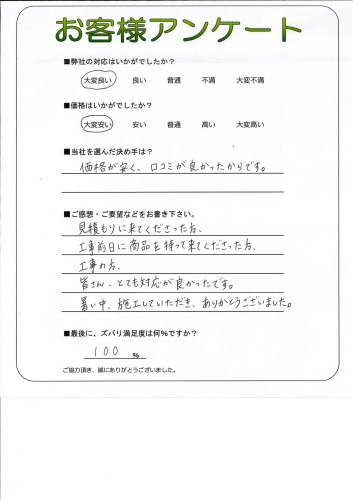 お客様アンケート
■弊社の対応はいかがでしたか?
大変良い 良い 普通 不満 大変不満
■価格はいかがでしたか?
大変安い 安い 普通 高い 大変高い
■当社を選んだ決め手は?
価格が安く、口コミが良かったからです。
■ご感想・ご要望などをお書き下さい。
見積もりに来てくださった方、
工事前日に商品を持って来てくださった方、
工事の方、
皆さん、とても対応が良かったです。
暑い中、施工していただき、ありがとうございました。
■最後に、ズバリ満足度は何%ですか?
100 %
ご協力頂き、誠にありがとうございました。